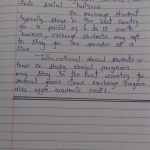 their social horizons
An exchange student
typically stay in the host country
for a period of 6 to 10 month
however, exchange students may opt
to stay for one semester at a
time.
International abroad students or
those on study abroad programs
may stay in the host country for
several years. Some exchange programs
also offer academic credit.